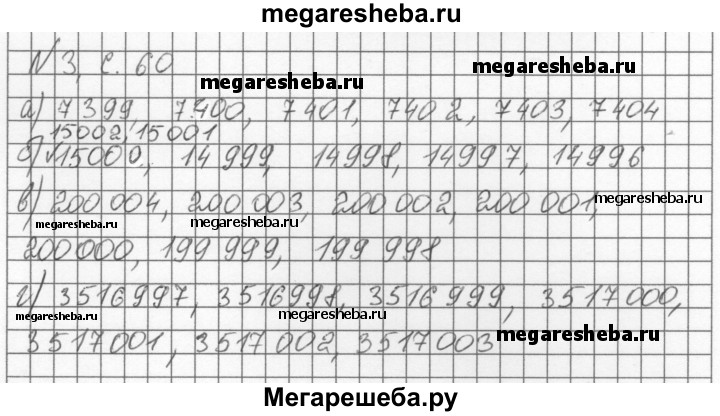 megaresheba.ru
№3, с. 60
megaresheba.ru megaresheba.ru
а) 7399, 7400, 7401, 7402, 7403, 7404
15002, 15001
б) 15000, 14999, 14998, 14997, 14996
в) 200 004, 200 003, 200 002, 200 001,
megaresheba.ru megaresheba.ru megaresheba.ru
200 000, 199 999, 199 998
г) 3516997, 3516998, 3516 999, 3517 000,
megaresheba.ru megaresheba.ru
3517001, 3517 002, 3517003
megaresheba.ru
Мегарешеба.ру